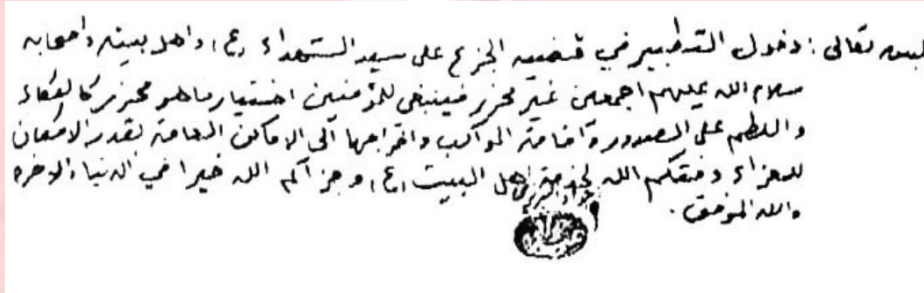 بسمه تعالى : دخول التطبير في قضيه الجزع على سيد الشهداء (ع) واهل بيته واصحابه
سلام الله عليهم اجمعين غير محرز فينبغي للمؤمنين اختيار ما هو محرز كالبكاء
واللطم على الصدور واقامة المواكب واخراجها الى الاماكن العامة بقدر الامكان
للعزاء وفقكم الله لخدمة اهل البيت (ع) وجزاكم الله خيرا في الدنيا والاخره
والله الموفق .